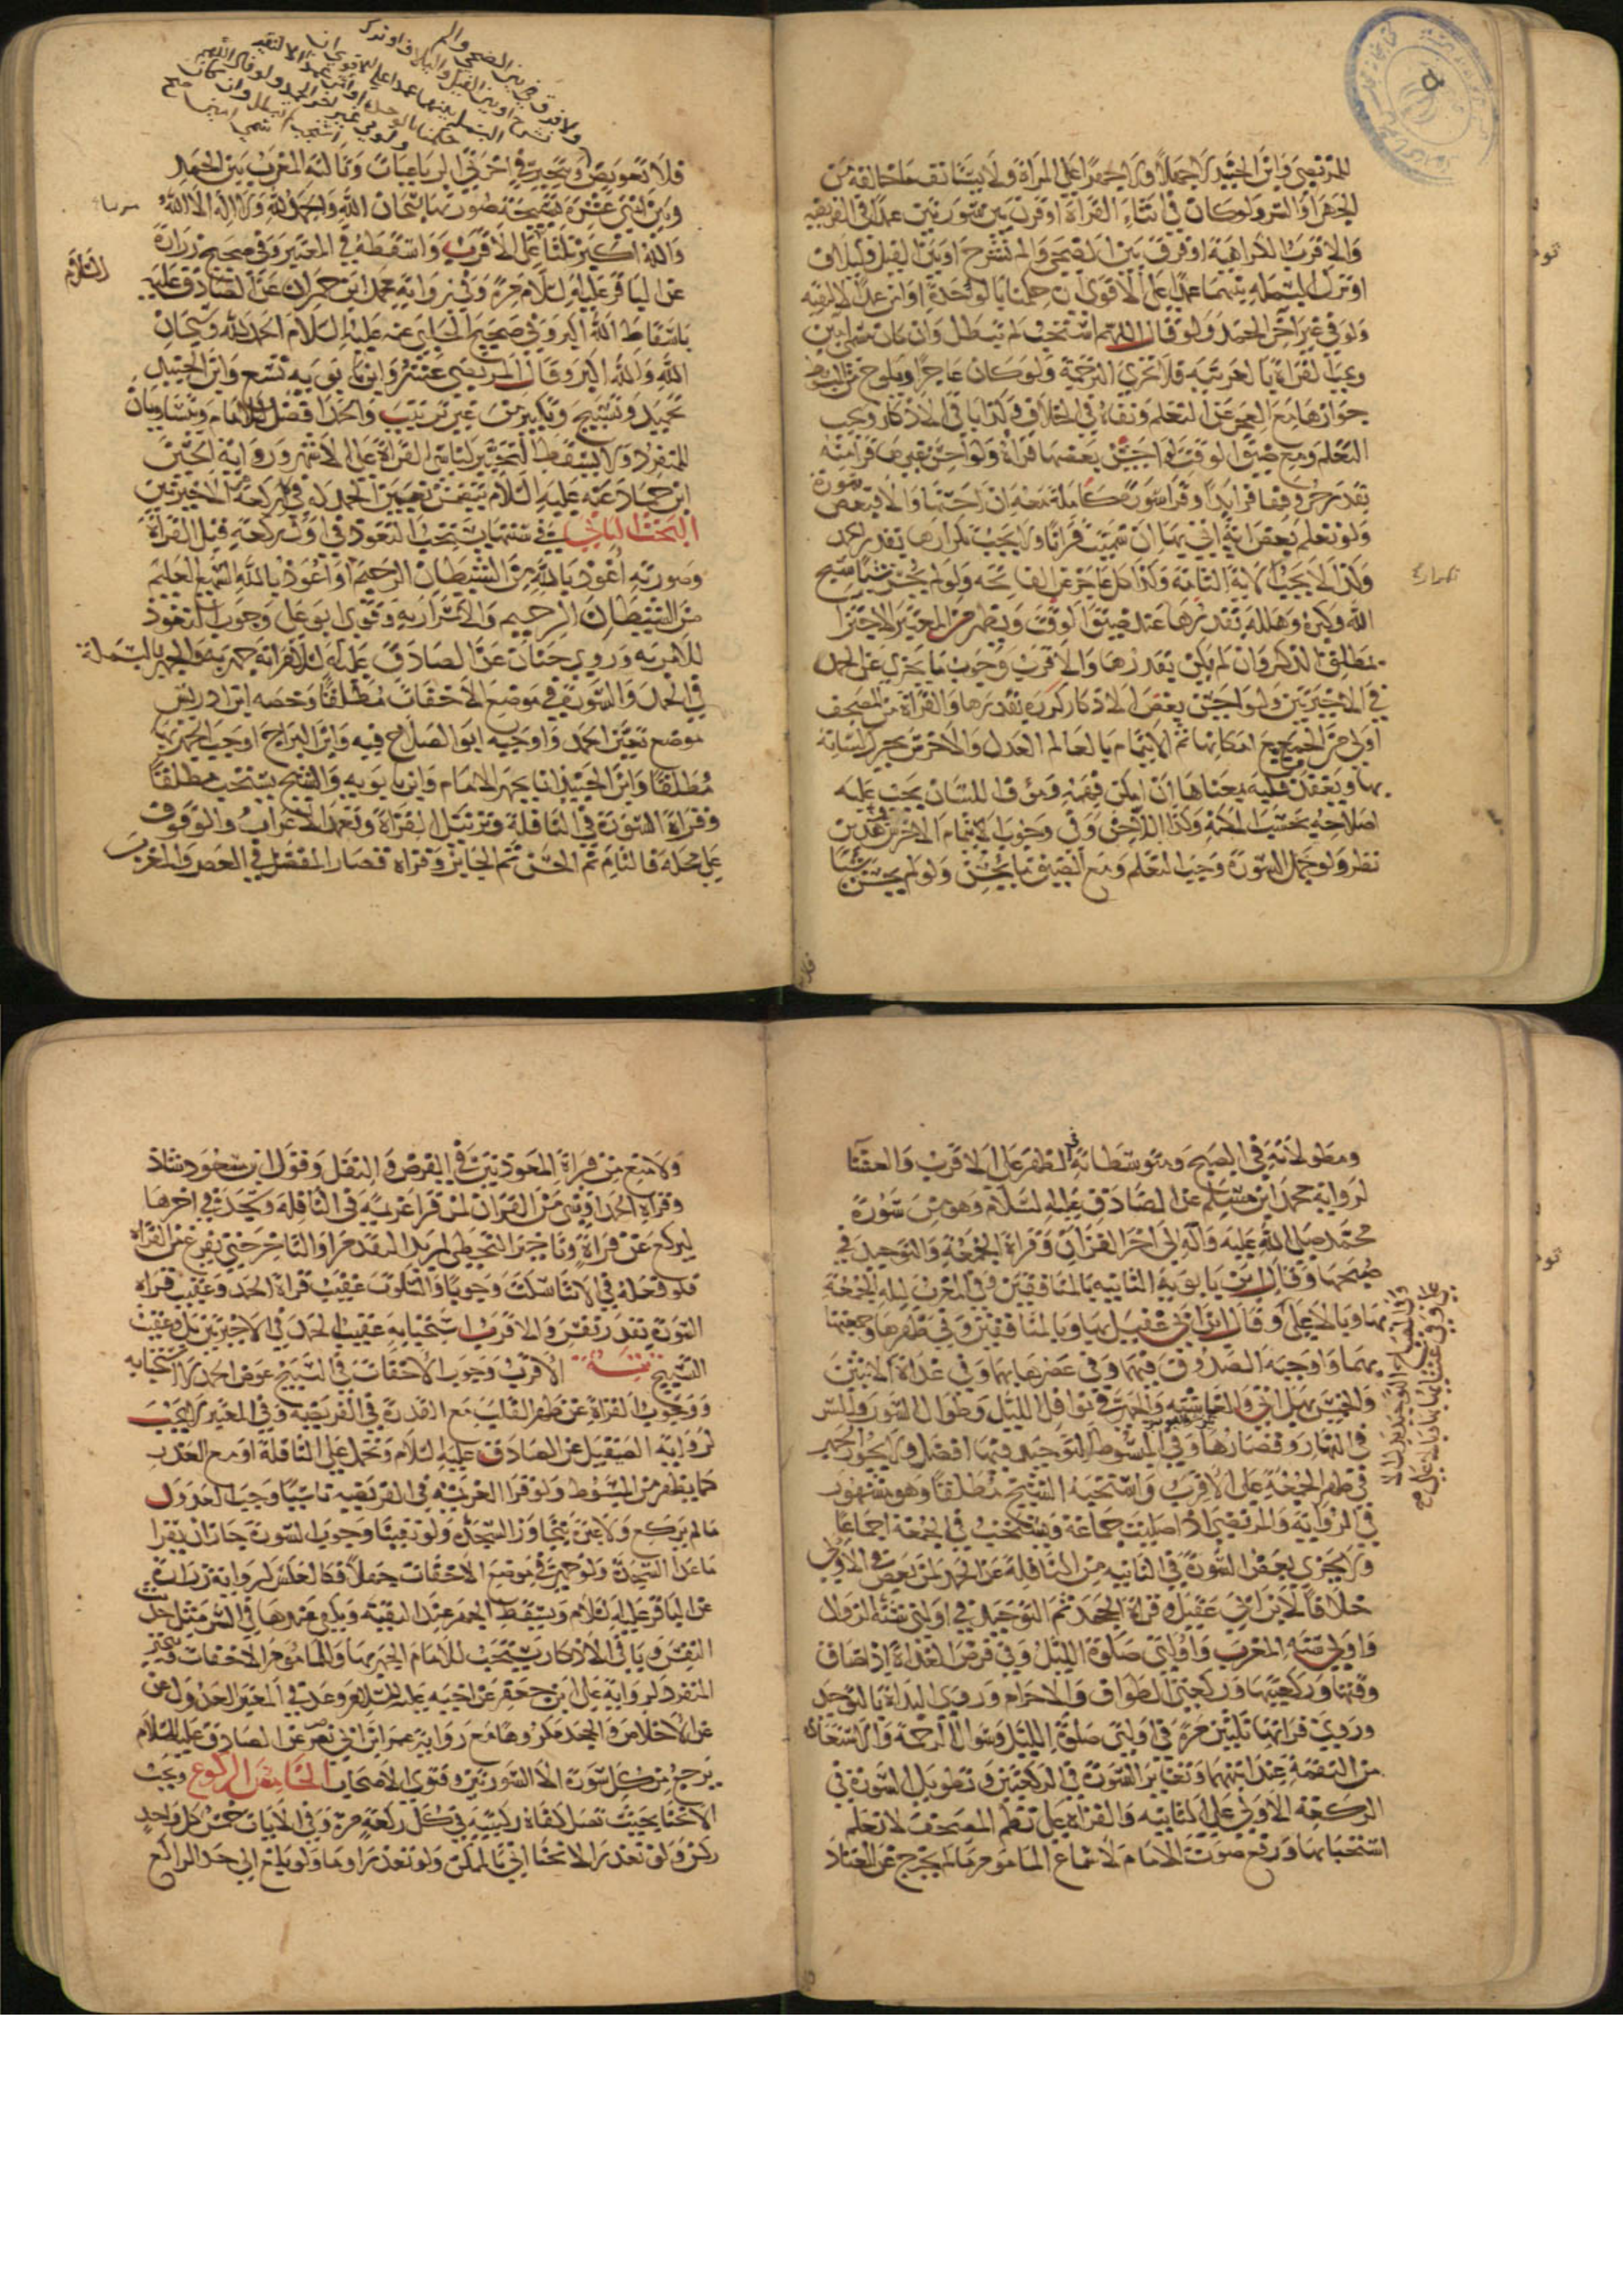 للمرتضى وابن الجنيد لا جهلا ولا جهرا على المرأة ولا يتناقف ما خالفه من
الجهر او السر ولو كان في اثناء القراءة او قرن بين سورتين عمدا في الفريضه
والاقرب الكراهية او فرق بين الضحى والم نشرح او بين الفيل ولايلاف
او ترك البسمله بينهما عمدا على الاقوى ان حكمنا بالواحدة او امن عمدا الا لتقيه
ولو في غير آخر الحمد ولو قال اللهم استجب لم تبطل وان كان مسمى آمين
ويجب القراءة بالعربية فلا تجزي الترجمة ولو كان عاجزا ويلوح من المبسوط
جوازها مع العجز عن التعلم ونفاه في الخلاف وكذا باقي الاذكار ويجب
التعلم ومع ضيق الوقت لو احسن بعضها قرأه ولو احسن بغيرها قرأ منه
بقدر حروفها فزايدا وقرأ سورة كاملة معه ان احسنها والا فبعض سورة
ولو تعلم بعض آية اتى بها ان سميت قرآنا ولا يجب تكرارها بقدر الحمد
وكذا لا يجب الآية التامة وكذا كل عاجز عن الفاتحه ولو لم يحسن شيئا سبح
الله وكبره وهلله بقدرها عند ضيق الوقت ويظهر من المعتبر الاجتزا
بمطلق الذكر وان لم يكن بقدرها والاقرب وجوب ما يجزي عن الحمد
في الاخيرتين ولو احسن بعض الاذكار كرره بقدرها والقراءة من المصحف
اولى من الجميع مع امكانها ثم الايتمام بالعالم العدل والاخرس يحرك لسانه
بها ويعقد قلبه بمعناها ان امكن فهمه ومؤوف اللسان يجب عليه
اصلاحه بحسب المكنه وكذا اللاحن وفي وجوب الايتمام على الاخرس وهذين
نظر ولو جهل السورة وجب التعلم ومع الضيق ما يحسن ولو لم يحسن شيئا
ولا فرق بين الضحى والم
نشرح او بين الفيل ولايلاف او ترك
البسملة بينهما عمدا على الاقوى ان
حكمنا بالوحدة او امن عمدا الا لتقيه
ولو في غير آخر الحمد ولو قال اللهم
استجب لم تبطل وان كان
مسمى امين صح
فلا تعويض ويتخير في اخرتي الرباعيات وثالثة المغرب بين الحمد
وبين اثنتي عشرة تسبيحة صورتها سبحان الله والحمد لله ولا اله الا الله
والله اكبر ثلثا على الاقرب واسقطه في المعتبر وفي صحيح زرارة
عن الباقر عليه السلام مرة وفي رواية محمد ابن حمران عن الصادق عليه
السلام
باسقاط الله اكبر وفي صحيح الحلبي عنه عليه السلام الحمد لله وسبحان
الله والله اكبر وقال المرتضى عشر وابن بابويه تسع وابن الجنيد
تحميد وتسبيح وتكبير من غير ترتيب والحمد افضل للامام ويتساويان
للمنفرد ولا يسقط التخيير لناسي القراءة على الاشهر ورواية الحسين
ابن حماد عنه عليه السلام يتضمن تعيين الحمد له في ركعة من الاخيرتين
البحث الثاني في سننها يستحب التعوذ في اول ركعة قبل القراءة
وصورته اعوذ بالله من الشيطان الرجيم او اعوذ بالله السميع العليم
من الشيطان الرجيم والاسرار به وفتوى ابو علي وجوب التعوذ
للامر به وروى حنان عن الصادق عليه السلام قراءته جهرا به والجهر بالبسملة
في الحمد والسورة في موضع الاخفات مطلقا وخصه ابن ادريس
موضع تعين الحمد واوجبه ابو الصلاح فيه وابن البراج اوجب الجهر بها
مطلقا وابن الجنيد انما يجهر الامام وابن بابويه والشيخ يستحب مطلقا
وقراءة السورة في النافلة وترتيل القراءة وتعمد الاعراب والوقوف
على محله فالتام ثم الحسن ثم الجايز وقراءة قصار المفضل في العصر والمغرب
ومطولاته في الصبح ومتوسطاته في الظهر على الاقرب والعشا
لرواية محمد ابن مسلم عن الصادق عليه السلام وهو من سورة
محمد صلى الله عليه وآله الى آخر القرآن وقراءة الجمعة والتوحيد في
صبحها وقال ابن بابويه الثانيه بالمنافقين وفي المغرب ليله الجمعة
بها وبالاعلى وقال ابن ابي عقيل بها وبالمنافقين وفي ظهرها وجمعتها
بهما واوجبه الصدوق فيهما وفي عصرها بهما وفي غداة الاثنين
والخميس بهل اتى والغاشيه والجهر في نوافل الليل وطوال السور والسر
في النهار وقصارها وفي المبسوط التوحيد فيها افضل ولا يجوز الجهر
في ظهر الجمعة على الاقرب واستحبه الشيخ مطلقا وهو مشهور
في الرواية والمرتضى اذا صليت جماعة ويستحب في الجمعة اجماعا
ولا يجزي بعض السورة في الثانيه من النافلة عن الحمد لمن بعض في الاولى
خلافا لابن ابي عقيل وقراءة الجحد ثم التوحيد في اولتي سنة الزوال
واولتي سنة المغرب واولتي صلوة الليل وفي فرض الغداة اذا ضاق
وقتها وركعتيها وركعتي الطواف والاحرام وروى البداة بالتوحيد
وروى قراتها ثلثين مرة في اولتي صلوة الليل وسوال الرحمة والاستعاذة
من النقمة عند آيتيهما وتغاير السورة في الركعتين وتطويل السورة في
الركعة الاولى على الثانيه والقراءة على نظم المصحف لا تعلم
استحبابها ورفع صوت الامام لاسماع الماموم ما لم يخرج عن المعتاد
ولا منع من قراءة المعوذتين في الفرض والنفل وقول ابن مسعود شاذ
وقراءة الحمد او شي من القرآن لمن قرأ عزيمة في النافلة وسجد في آخرها
ليركع عن قراءة وتاخير التخطي لمريد التقدم او التاخر حتى يفرغ من القراءة
فلو فعله في الاثنا سكت وجوبا والسكوت عقيب قراءة الحمد وعقيب قراءة
السورة بقدر نفس والاقرب استحبابه عقيب الحمد في الاخيرتين بل وعقيب
التسبيح تتمة الاقرب وجوب الاخفات في التسبيح عوض الحمد لا استحبابه
ووجوب القراءة عن ظهر القلب مع القدرة في الفريضه وفي المعتبر لا يجب
لرواية الصيقل عن الصادق عليه السلام وتحمل على النافلة او مع العذر
كما يظهر من المبسوط ولو قرا العزيمة في الفريضه ناسيا وجب العدول
ما لم يركع ولا عبرة بتجاوز السجدة ولو نفينا وجوب السورة جاز ان يقرا
ما عدا السجدة ولو جهر في موضع الاخفات جهلا فكالعكس لرواية زرارة
عن الباقر عليه السلام ويسقط الجهر عند التقيه ويكفي عندها في السر مثل حديث
النفس وباقي الاذكار يستحب للامام الجهر بها وللماموم الاخفات ويتخير
المنفرد لرواية علي ابن جعفر عن اخيه عليه السلام وعد في المعتبر العدول عن
عن الاخلاص والجحد مكروها مع رواية عمر ابن ابي نصر عن الصادق عليه السلام
يرجع من كل سورة الا السورتين وفتوى الاصحاب الخامس الركوع ويجب
الانحنا بحيث تصل كفاه ركبتيه في كل ركعة مرة وفي الايات خمس كل واحد
ركن ولو تعذر الانحنا اتى بالممكن ولو تعذر اوما ولو بلغ الى حد الراكع